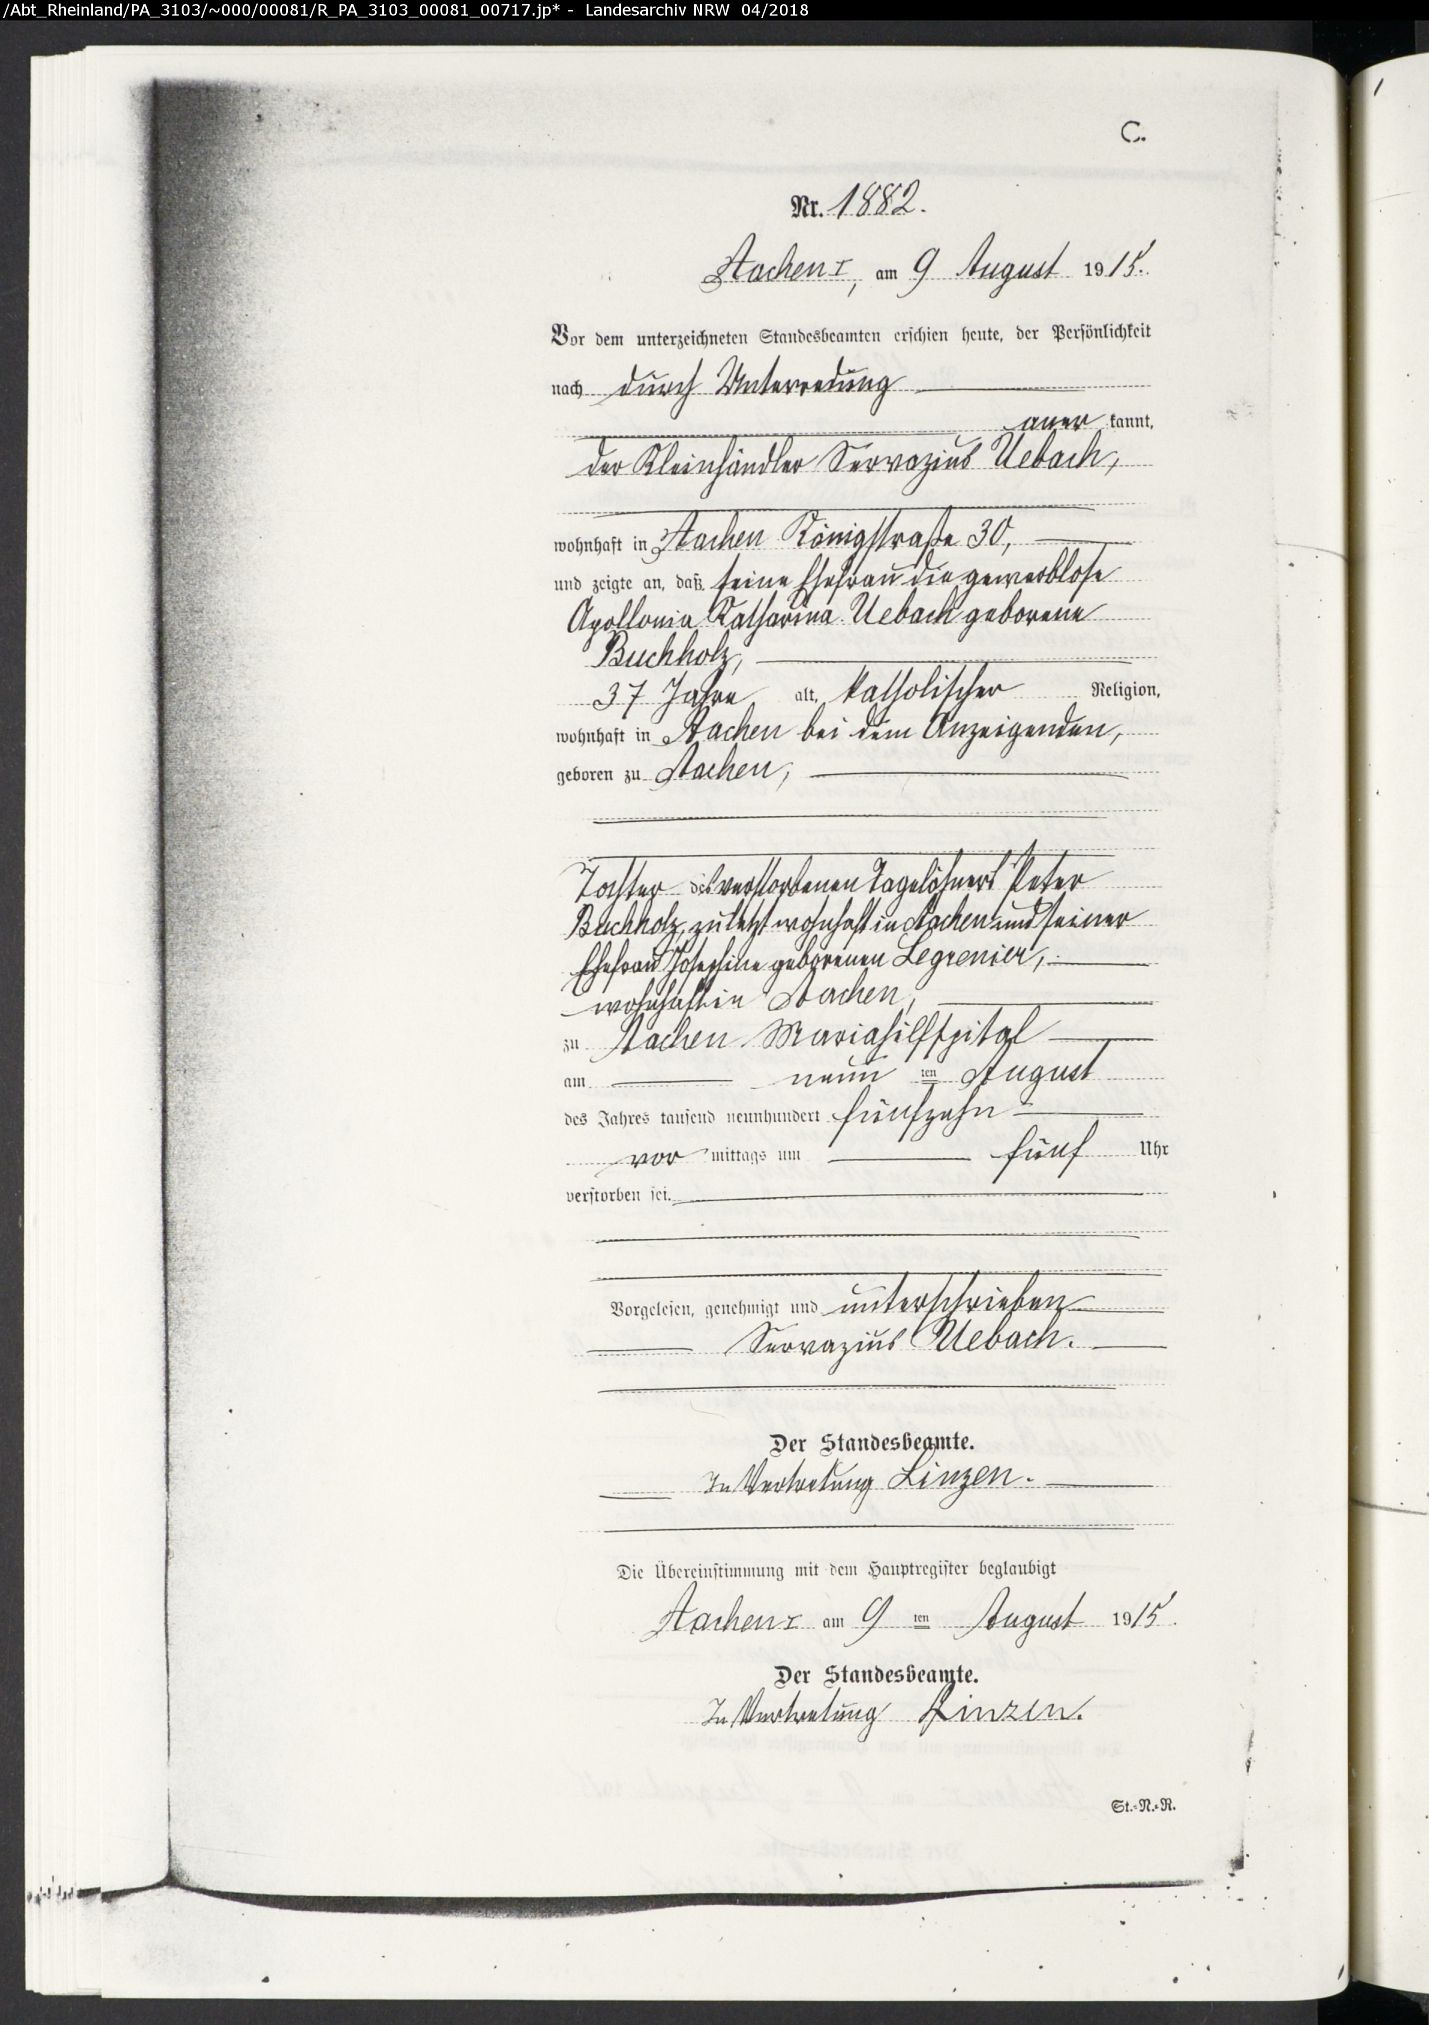 /Abt_Rheinland/PA_3103/~000/00081/R_PA_3103_00081_00717.jp* - Landesarchiv NRW 04/2018
C.
Nr. 1882.
Aachen I, am 9 August 1915.
Vor dem unterzeichneten Standesbeamten erschien heute, der Persönlichkeit
nach durch Unterredung
anerkannt,
der Kleinhändler Servazius Uebach,
wohnhaft in Aachen Königstraße 30,
und zeigte an, daß seine Ehefrau die gewerblose
Apollonia Katharina Uebach geborene
Buchholz,
37 Jahre alt, katholischer Religion,
wohnhaft in Aachen bei dem Anzeigenden,
geboren zu Aachen,
Tochter des verstorbenen Tagelöhners Peter
Buchholz, zuletzt wohnhaft in Aachen und seiner
Ehefrau Josephine geborenen Legrenier,
wohnhaft in Aachen,
zu Aachen Mariahilfspital
am neun ten August
des Jahres tausend neunhundert fünfzehn
vor mittags um fünf Uhr
verstorben sei.
Vorgelesen, genehmigt und unterschrieben
Servazius Uebach.
Der Standesbeamte.
In Vertretung Linzen.
Die Übereinstimmung mit dem Hauptregister beglaubigt
Aachen I am 9 ten August 1915.
Der Standesbeamte.
In Vertretung Linzen.
St.-N.-R.